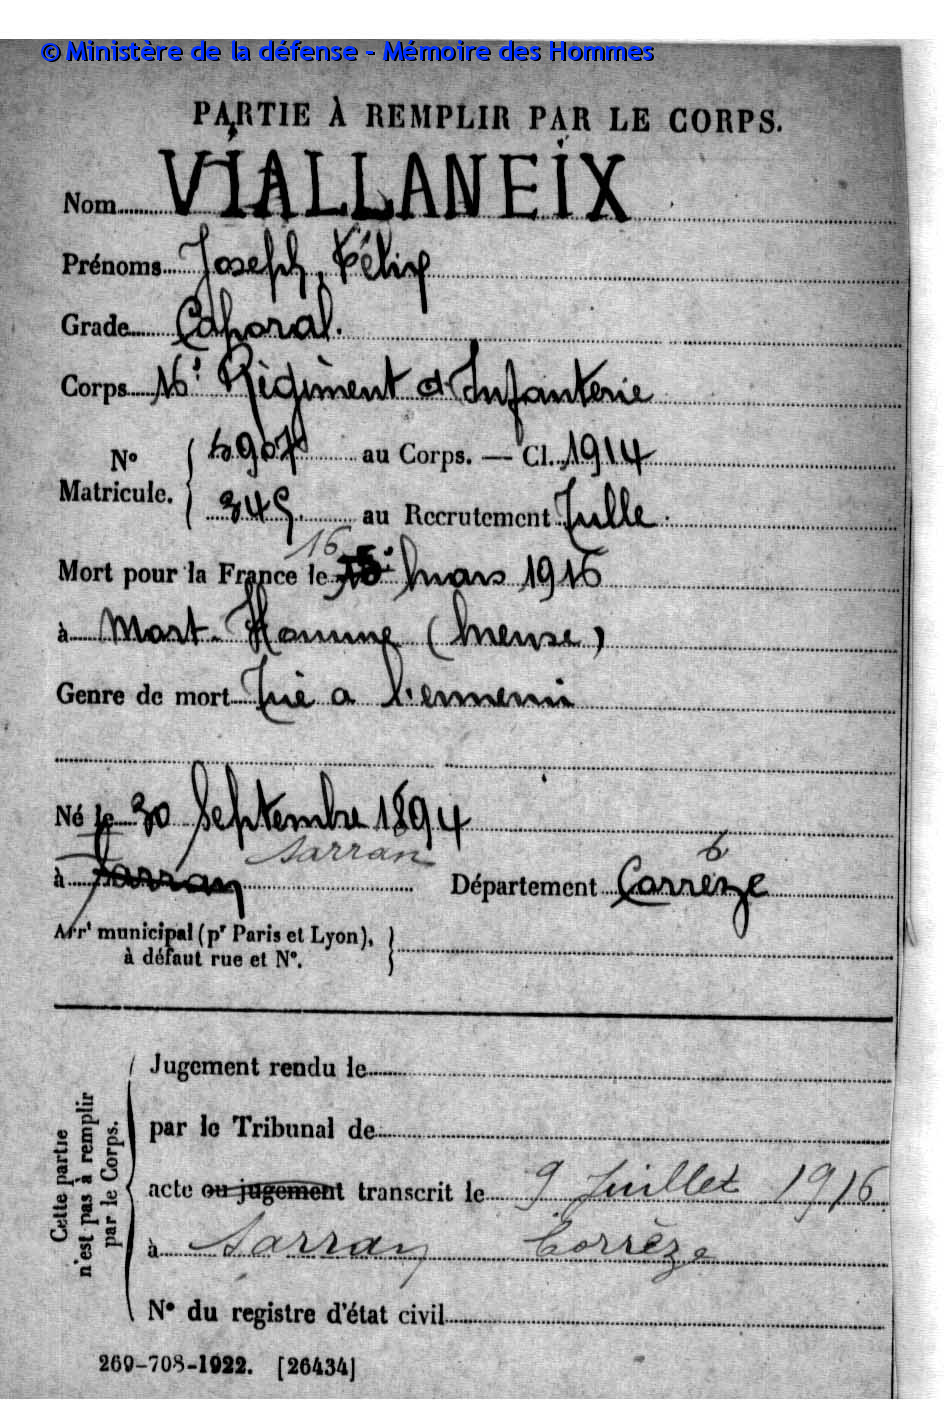 © Ministère de la défense - Mémoire des Hommes
PARTIE À REMPLIR PAR LE CORPS.
Nom VIALLANEIX
Prénoms Joseph, Félix
Grade Caporal.
Corps 16e Régiment d'Infanterie
No
Matricule.
5907 au Corps. — Cl. 1914
345 au Recrutement Tulle
16
Mort pour la France le mars 1916
à Mort-Homme (Meuse)
Genre de mort Tué a l'ennemi
Né le 30 Septembre 1894
Sarran
à Sarran Département Corrèze
Arrt municipal (pr Paris et Lyon),
à défaut rue et No.
Cette partie
n'est pas à remplir
par le Corps.
Jugement rendu le
par le Tribunal de
acte ou jugement transcrit le 9 Juillet 1916
à Sarran Corrèze
No du registre d'état civil
269-708-1922. [26434]